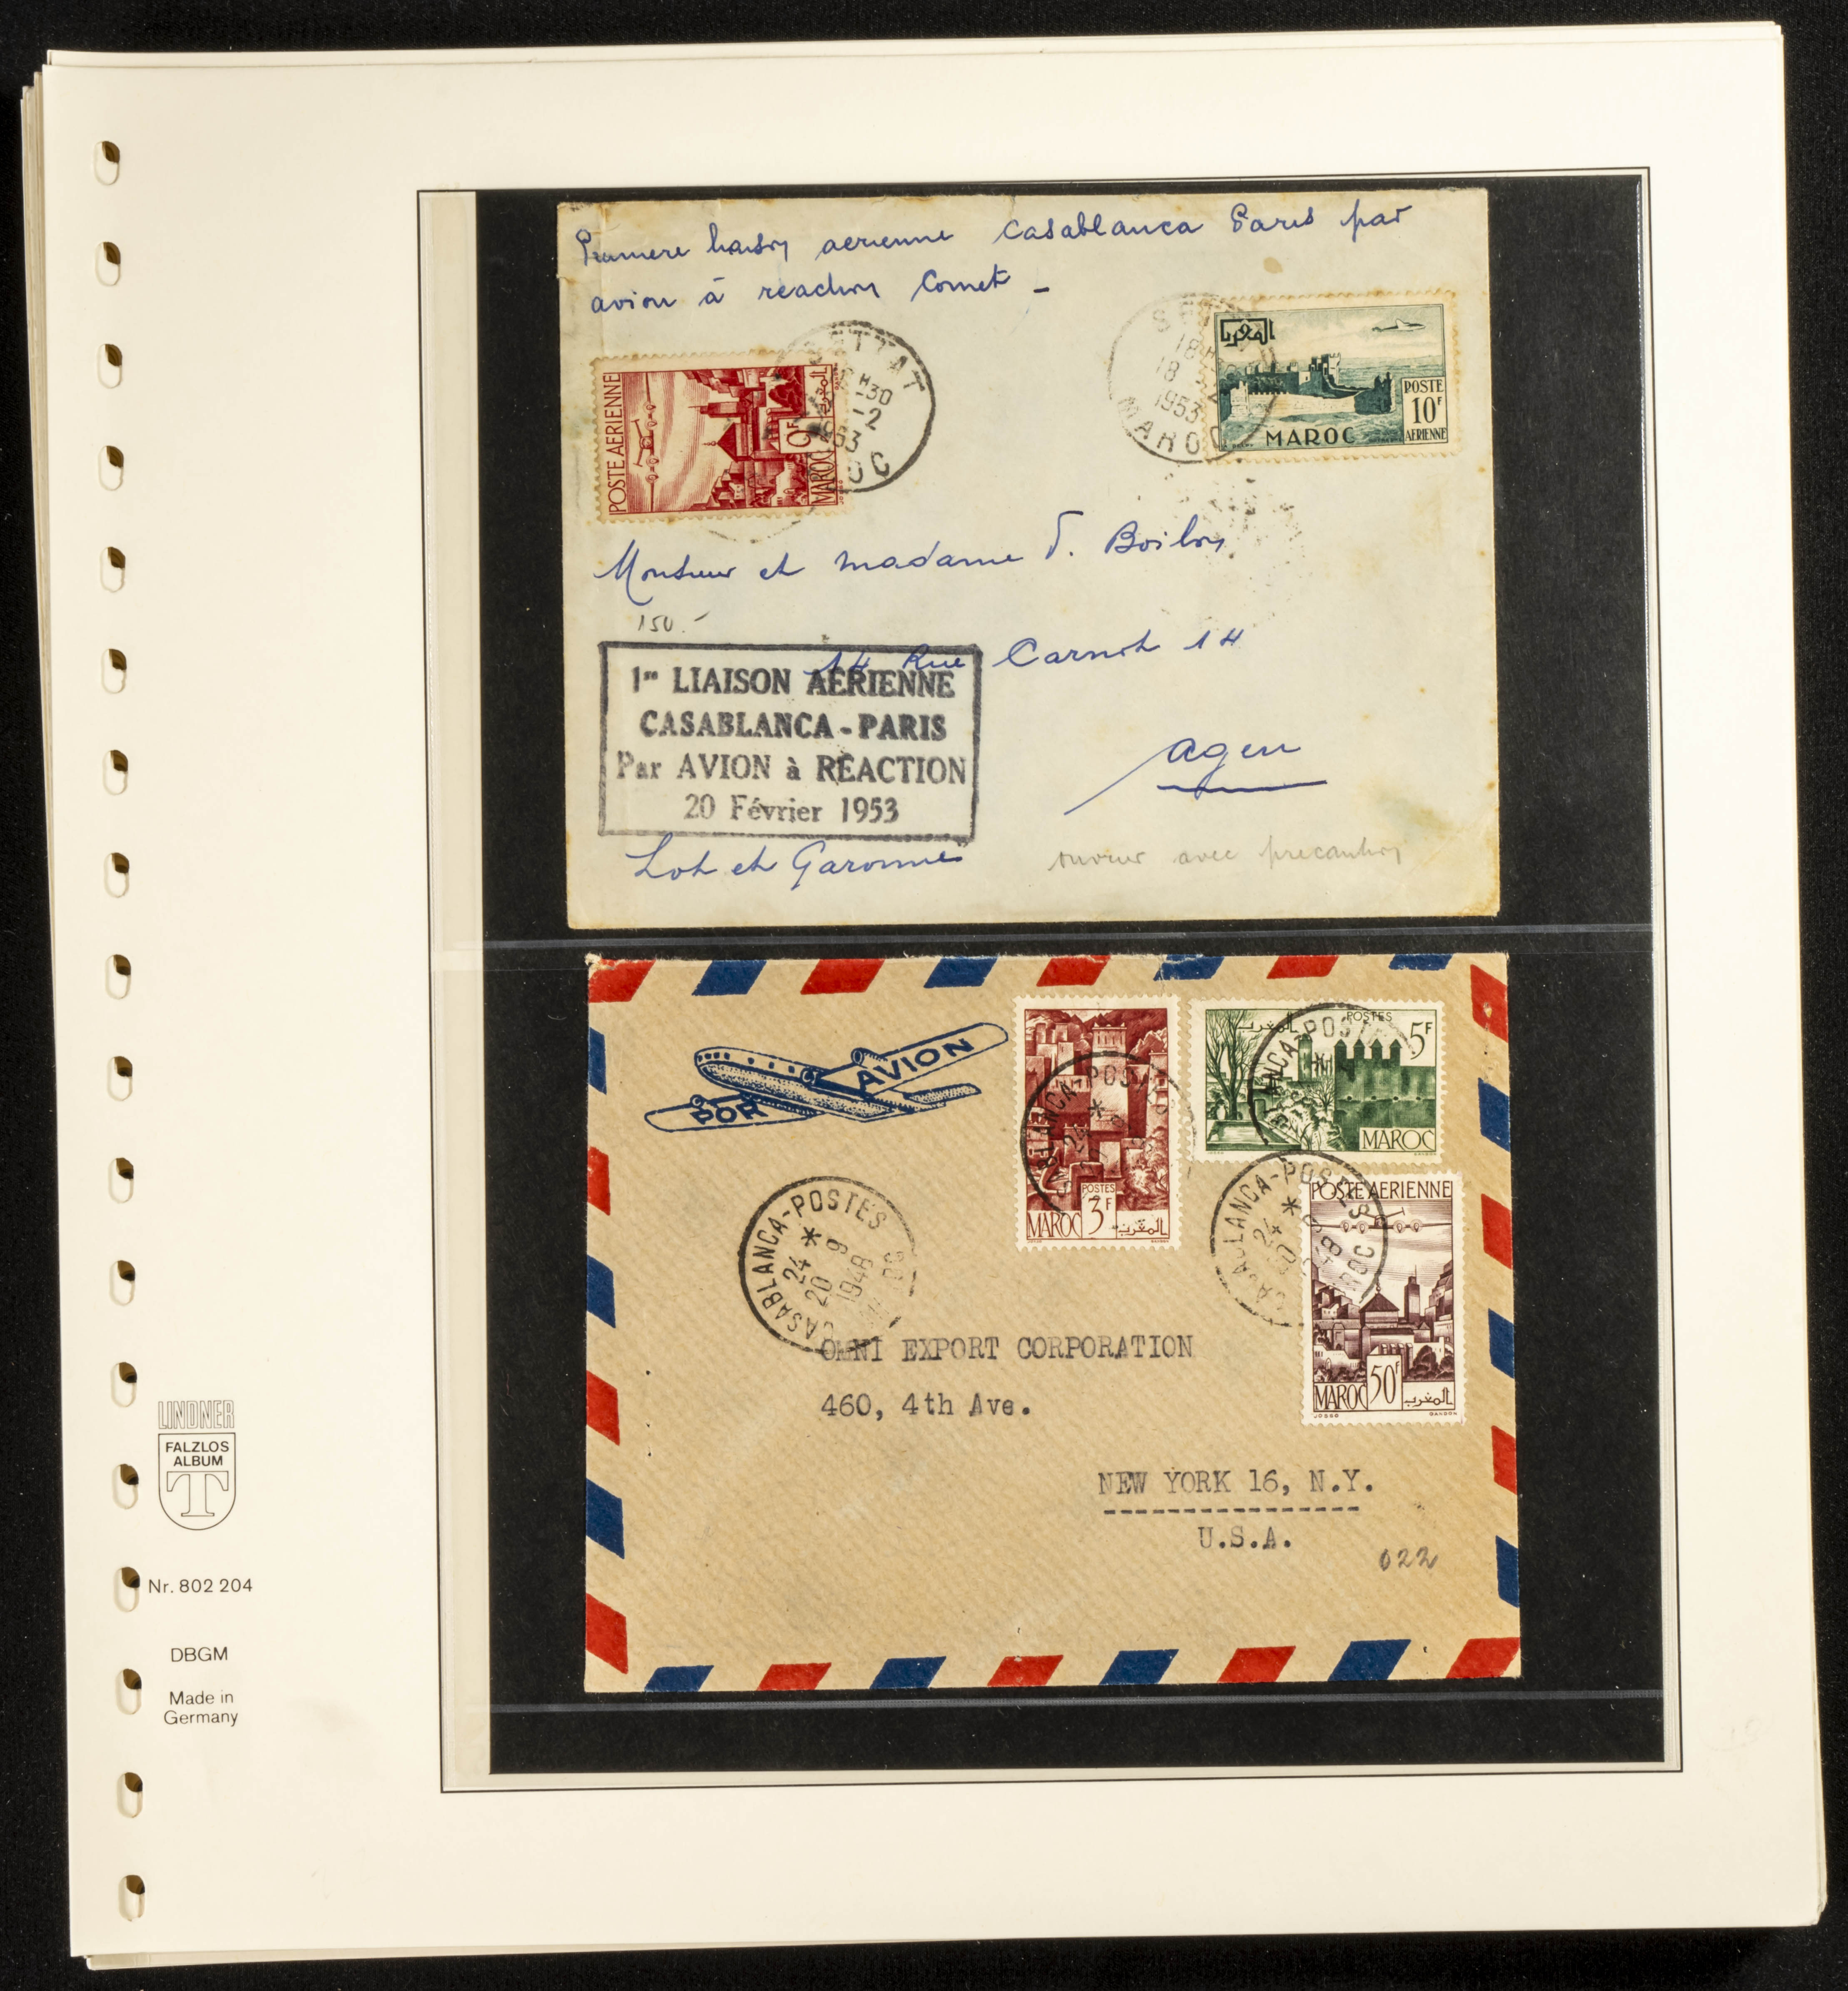 Premiere liaison aerienne Casablanca Paris par
avion à reaction Comet -
SETTAT
H
-30
-2
53
OC
POSTE AERIENNE
MAROC
10F
المغرب
18H
18
2
1953
MAROC
المغرب
POSTE
10F
AERIENNE
MAROC
Monsieur et madame
150.-
14 Rue Carnot 14
1re LIAISON AÉRIENNE
CASABLANCA - PARIS
Par AVION à RÉACTION
20 Février 1953
agen
Lot et Garonne
ouvrir avec precaution
PAR AVION
POSTES
3F
MAROC
المغرب
POSTES
5F
المغرب
MAROC
CASABLANCA-POSTES
24 *
20 9
1948
CASABLANCA-POSTES
24 *
POSTE AERIENNE
MAROC
50F
المغرب
JOSSO
GANDON
OMNI EXPORT CORPORATION
460, 4th Ave.
NEW YORK 16, N.Y.
U.S.A.
022
LINDNER
FALZLOS
ALBUM
T
Nr. 802 204
DBGM
Made in
Germany